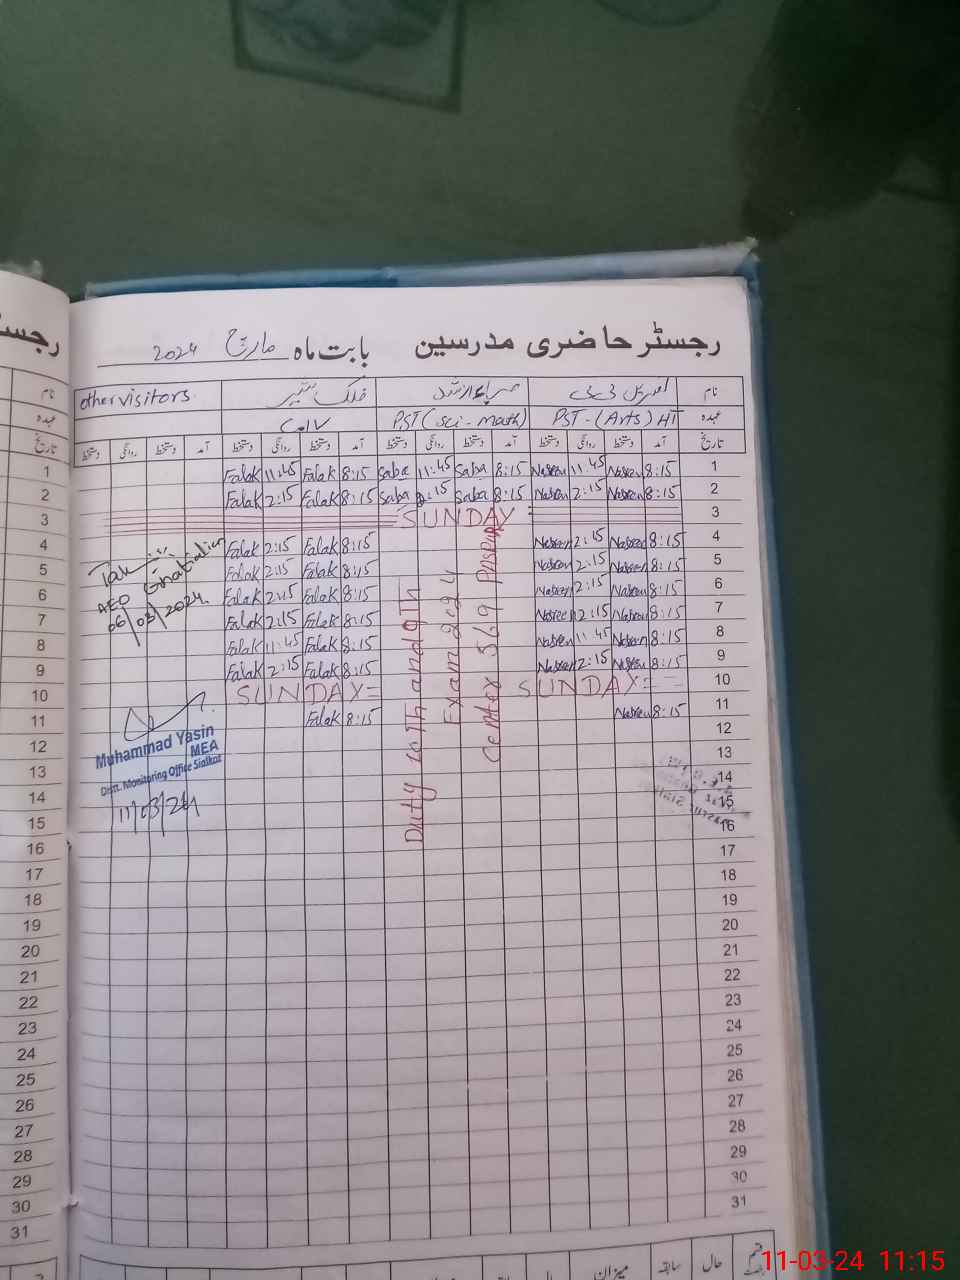 رجسٹر حاضری مدرسین بابت ماہ مارچ 2024
نام
other visitors
عہدہ PST-(Arts) HT PST (Sci-math)
تاریخ آمد دستخط روانگی دستخط آمد دستخط روانگی دستخط آمد دستخط روانگی دستخط آمد دستخط روانگی دستخط
1 8:15 Nasreen 11:45 Nasreen 8:15 Saba 11:45 Saba 8:15 Falak 11:45 Falak
2 8:15 Nasreen 2:15 Nasreen 8:15 Saba 2:15 Saba 8:15 Falak 2:15 Falak
3 SUNDAY
4 8:15 Nasreen 2:15 Nasreen 8:15 Falak 2:15 Falak
5 8:15 Nasreen 2:15 Nasreen 8:15 Falak 2:15 Falak
6 8:15 Nasreen 2:15 Nasreen 8:15 Falak 2:15 Falak
7 8:15 Nasreen 2:15 Nasreen 8:15 Falak 2:15 Falak
8 8:15 Nasreen 11:45 Nasreen 8:15 Falak 11:45 Falak
9 8:15 Nasreen 2:15 Nasreen 8:15 Falak 2:15 Falak
10 SUNDAY= SUNDAY=
11 8:15 Nasreen 8:15 Falak
12
13
14
15
16
17
18
19
20
21
22
23
24
25
26
27
28
29
30
31
Duty 10Th and 9Th
Exam 2024
Center 569
AEO
06/03/2024
Muhammad Yasin
MEA
Distt. Monitoring Office Sialkot
11/03/24
حال سابقہ میزان
نام
عہدہ
تاریخ
1
2
3
4
5
6
7
8
9
10
11
12
13
14
15
16
17
18
19
20
21
22
23
24
25
26
27
28
29
30
31
11-03-24 11:15